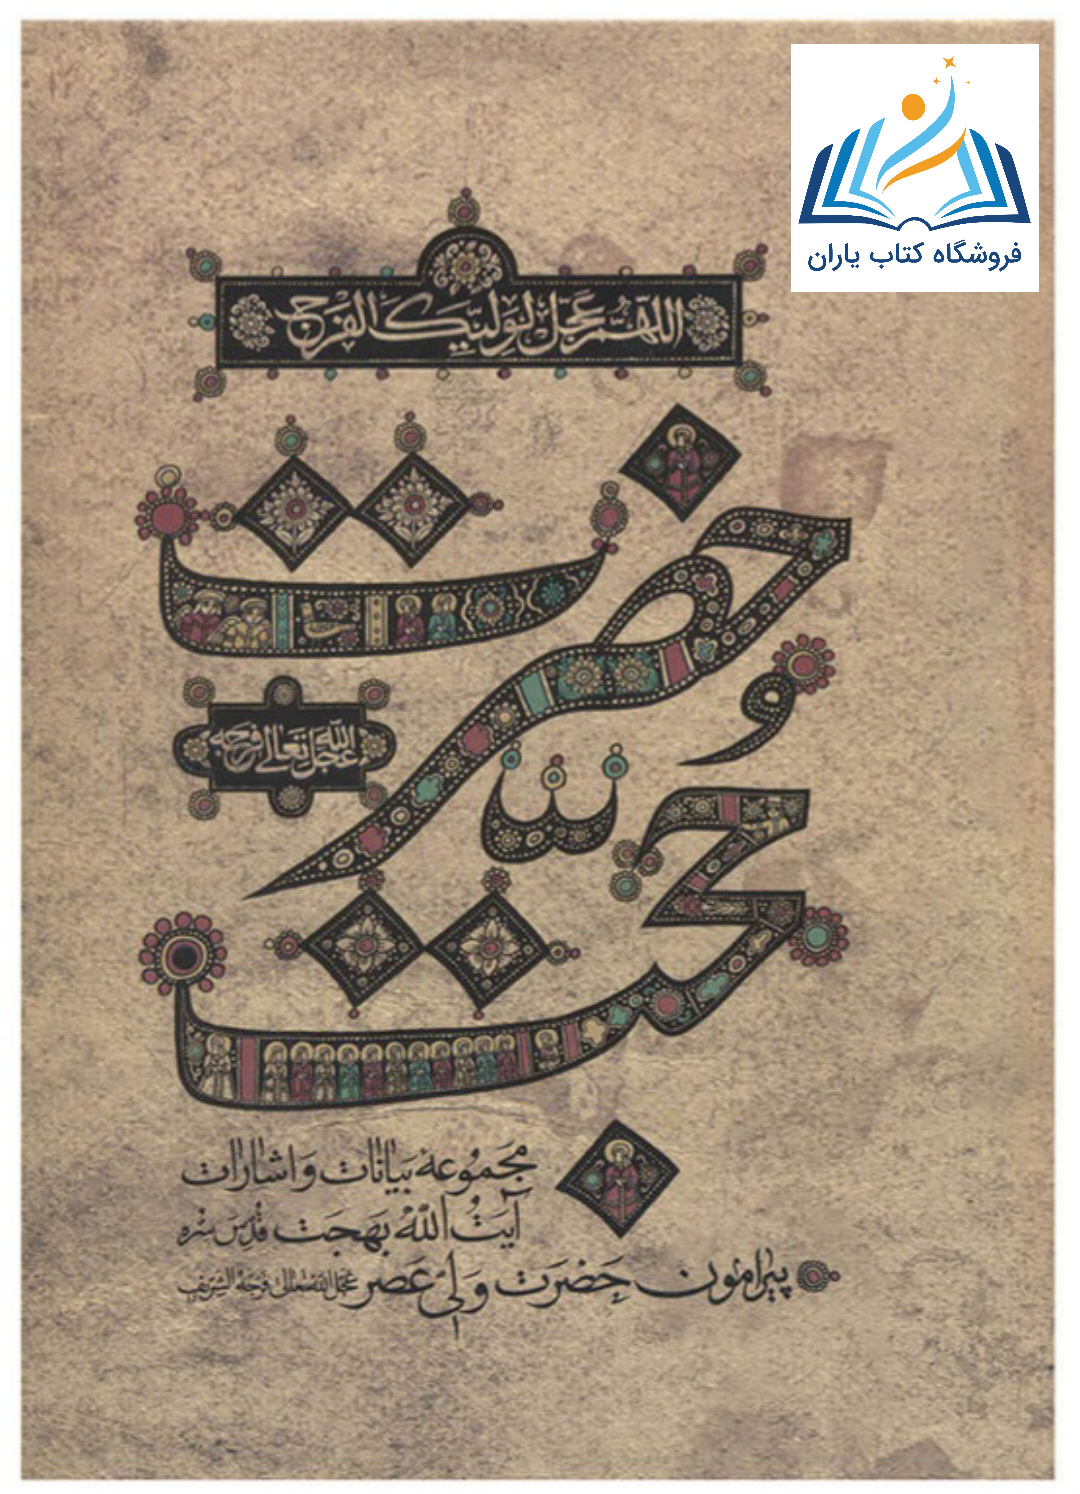 فروشگاه کتاب یاران
اللهم عجل لولیک الفرج
حضرت
و
عجل الله تعالی فرجه
حجت
مجموعه بیانات و اشارات
آیت الله بهجت قدس سره
پیرامون حضرت ولی عصر عجل الله تعالی فرجه الشریف